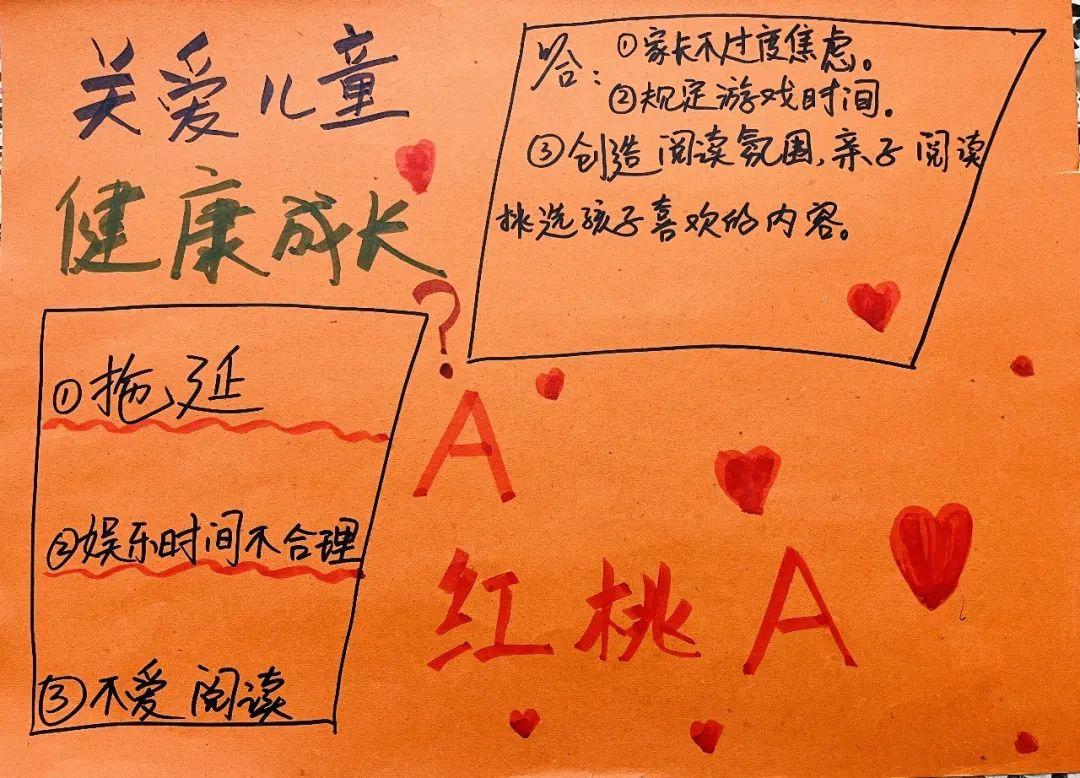 关爱儿童
健康成长
?
①拖延
②娱乐时间不合理
③不爱阅读
答:①家长不过度焦虑。
②规定游戏时间。
③创造阅读氛围,亲子阅读
挑选孩子喜欢的内容。
A
红桃A